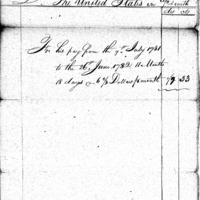 The United States
For his pay from the 9th. July 1781
to the 26th. June 1782 11 Month
18 days @ 6 2/3 Dollars p month 77 33